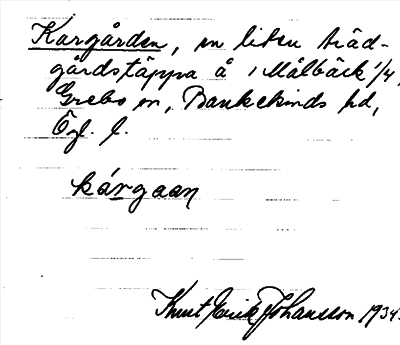 Kargården, en liten träd-
gårdstäppa å 1 Målbäck 1/4,
Grebo sn, Bankekinds hd,
Ög. l.
kárgaan
Knut Erik Johansson 1934.